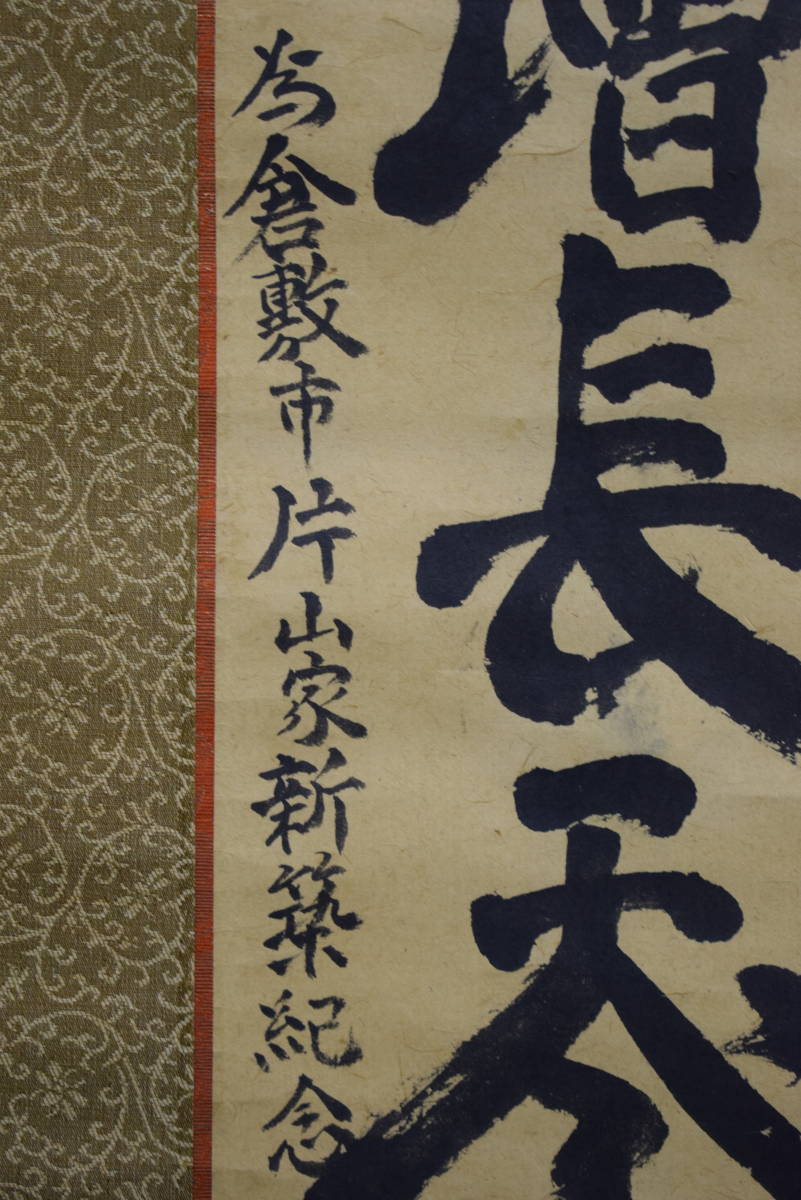 增長天
為倉敷市片山家新築紀念